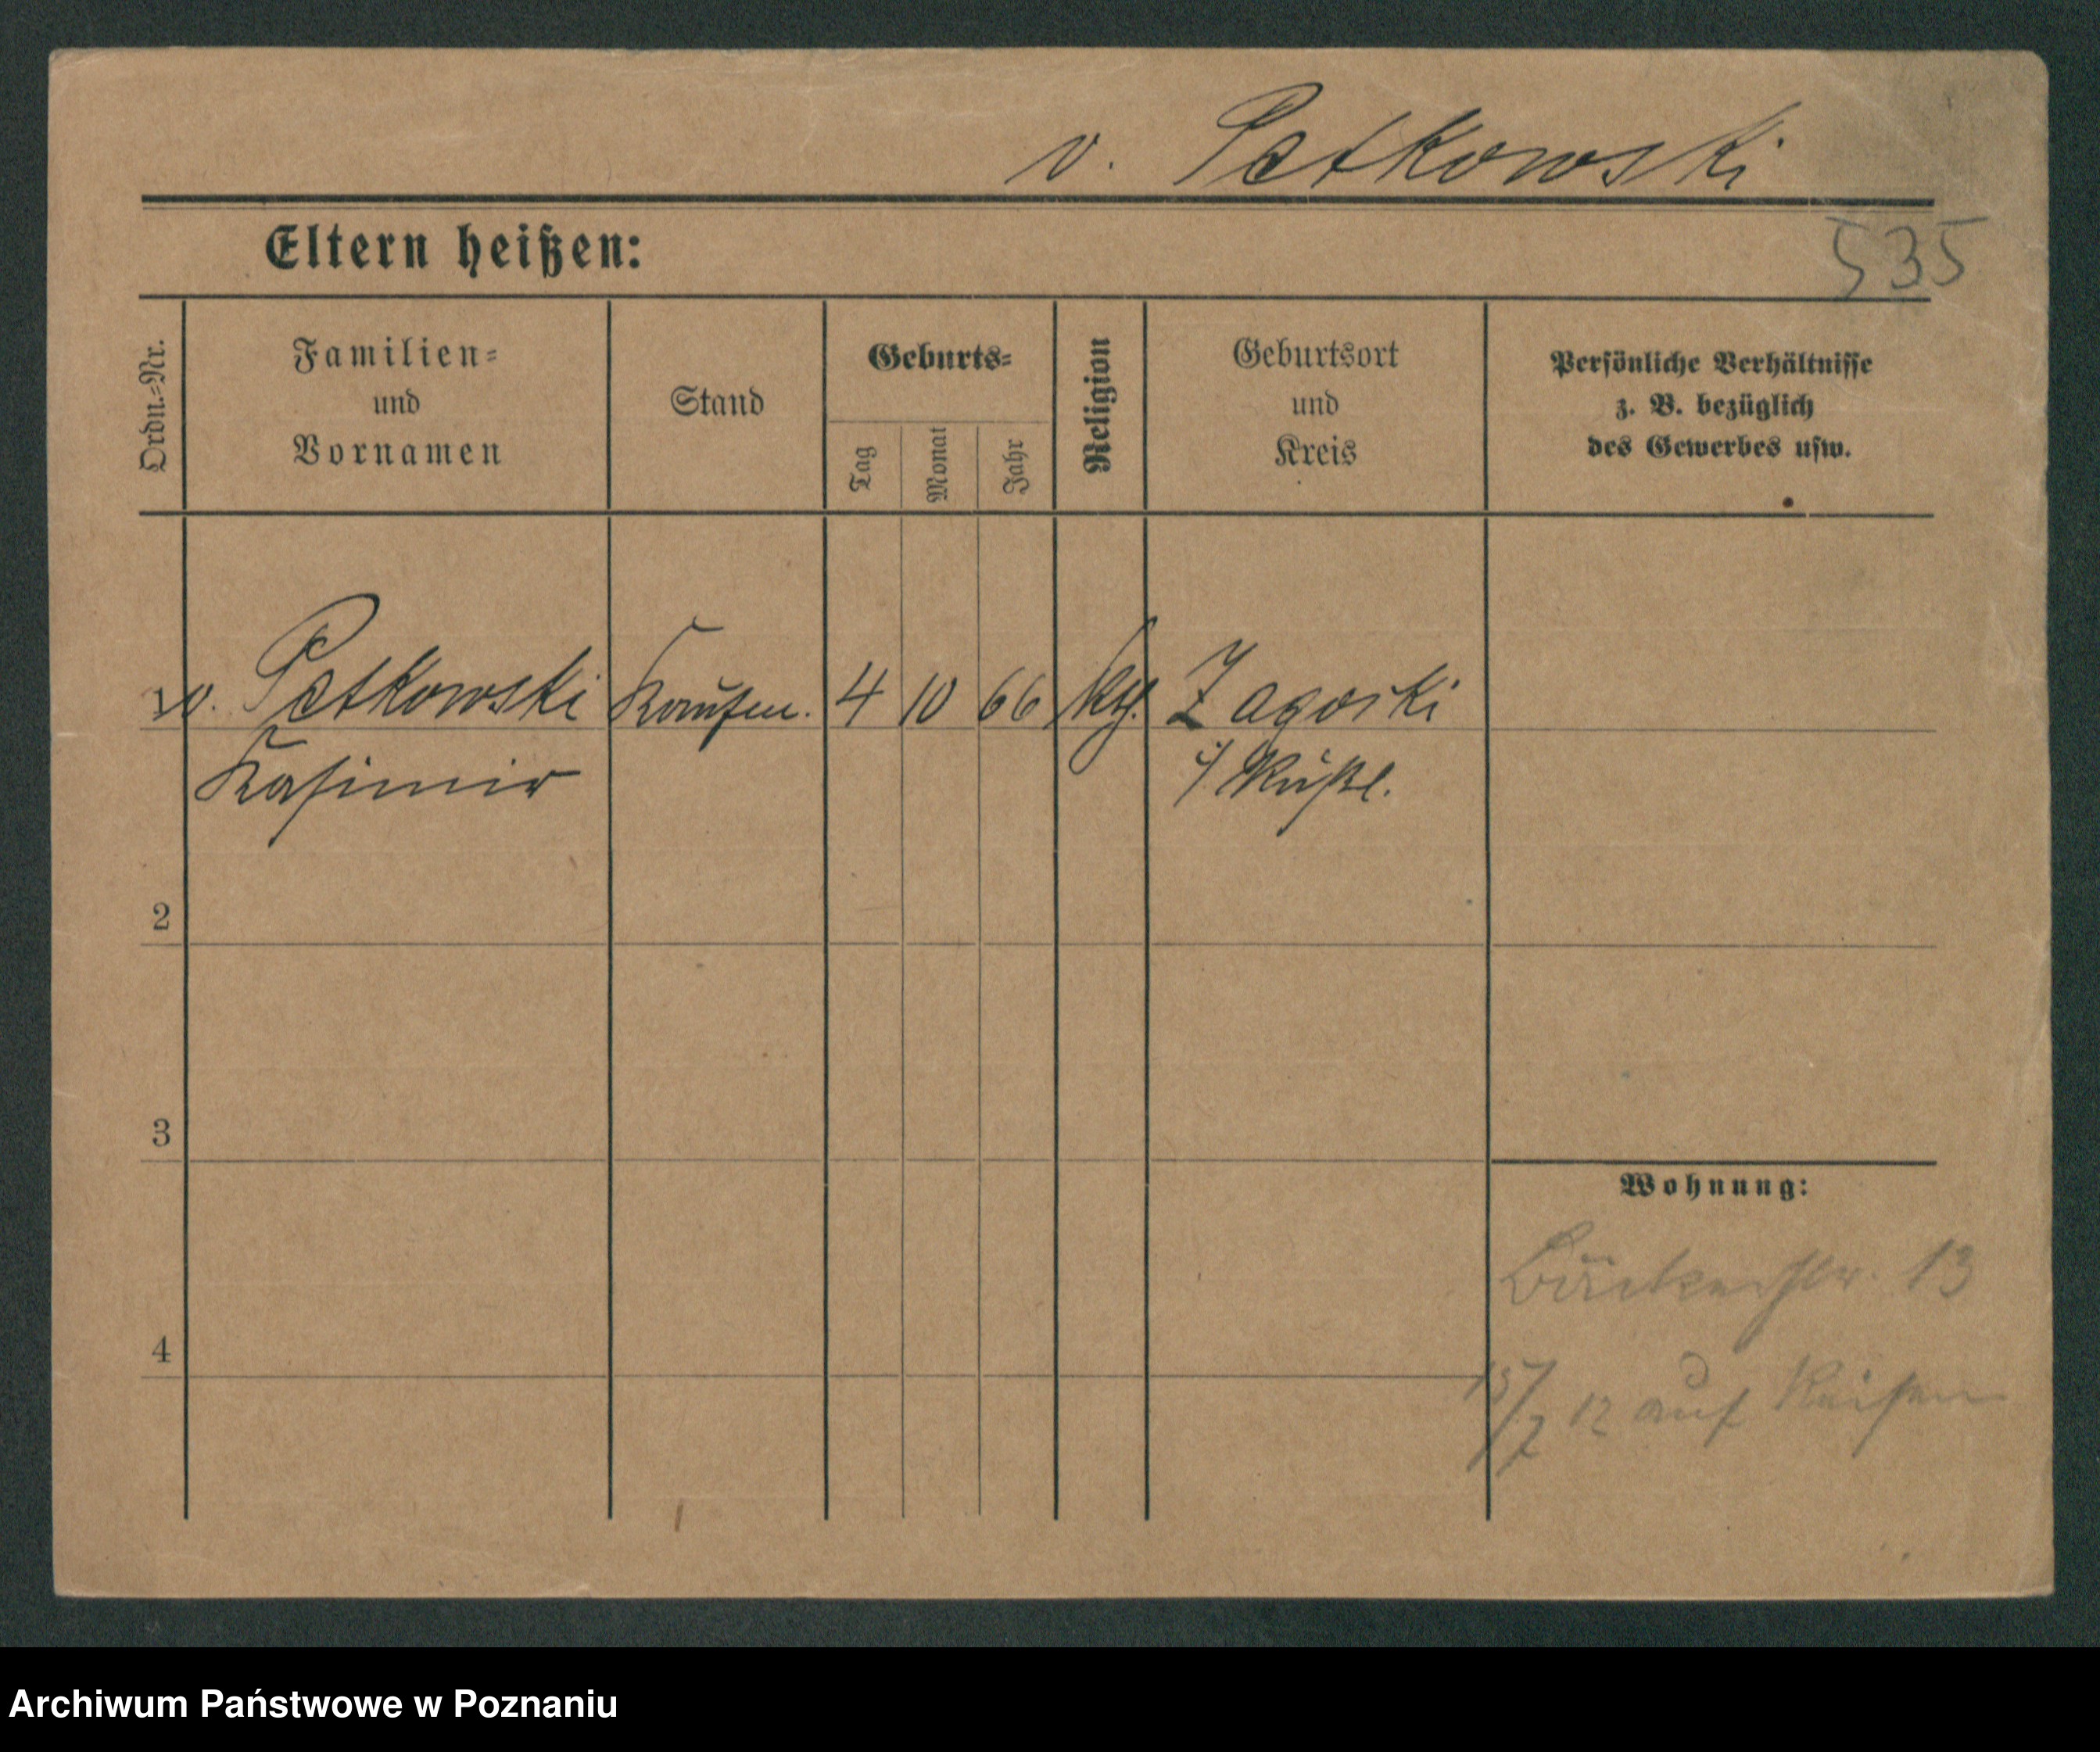 v. Petkowski
Eltern heißen:
535
Ordn.=Nr.
Familien=
und
Vornamen
Stand
Geburts=
Tag
Monat
Jahr
Religion
Geburtsort
und
Kreis
Persönliche Verhältnisse
z. B. bezüglich
des Gewerbes usw.
v. Petkowski Kaufm. 4 10 66 kth. Zagorki
Kasimir i/ Rußl.
2
3
4
Wohnung:
Bäckerstr. 13
12 auf Reisen
Archiwum Państwowe w Poznaniu